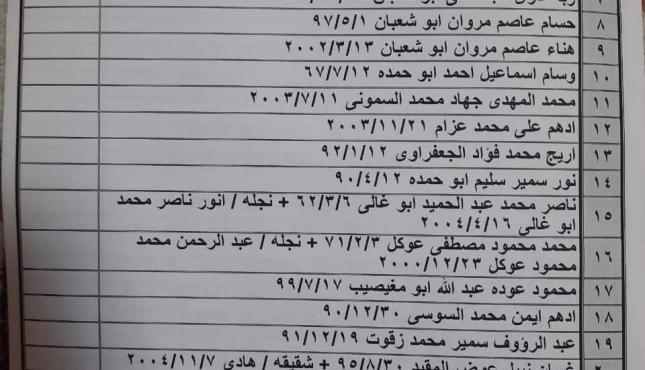 ٨ حسام عاصم مروان ابو شعبان ٩٧/٥/١
٩ هناء عاصم مروان ابو شعبان ٢٠٠٢/٣/١٣
١٠ وسام اسماعيل احمد ابو حمده ٦٧/٧/١٢
١١ محمد المهدى جهاد محمد السمونى ٢٠٠٣/٧/١١
١٢ ادهم على محمد عزام ٢٠٠٣/١١/٢١
١٣ اريج محمد فؤاد الجعفراوى ٩٢/١/١٢
١٤ نور سمير سليم ابو حمده ٩٠/٤/١٢
١٥ ناصر محمد عبد الحميد ابو غالى ٦٢/٣/٦ + نجله / انور ناصر محمد
ابو غالى ٢٠٠٤/٤/١٦
١٦ محمد محمود مصطفى عوكل ٧١/٢/٣ + نجله / عبد الرحمن محمد
محمود عوكل ٢٠٠٠/١٢/٢٣
١٧ محمود عوده عبد الله ابو مغيصيب ٩٩/٧/١٧
١٨ ادهم ايمن محمد السوسى ٩٠/١٢/٣٠
١٩ عبد الرؤوف سمير محمد زقوت ٩١/١٢/١٩
نبيل عوض المقيد ٩٥/٨/٣٠ + شقيقه / هادي ٢٠٠٤/١١/٧